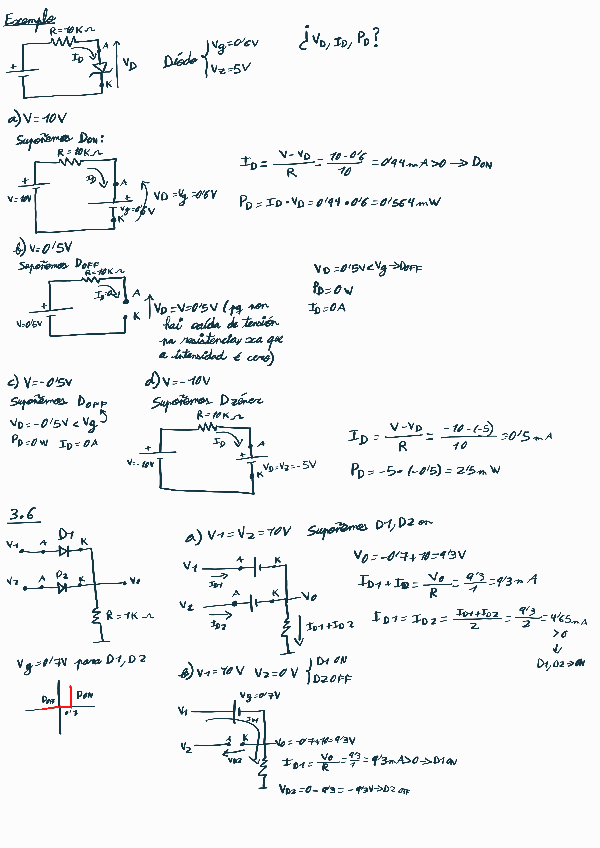 Exemplo
R=10KΩ
A
+
ID
VD
K
Diodo { Vg=0'6V
Vz=5V
¿VD, ID, PD?
a) V=10V
Supoñemos DON:
R=10KΩ
ID
A
+
V=10V
Vg=0'6V
K
VD=Vg=0'6V
ID = V-VD / R = 10-0'6 / 10 = 0'94mA>0 → DON
PD=ID·VD=0'94·0'6=0'564mW
b) V=0'5V
Supoñemos DOFF
R=10KΩ
ID=0
A
K
+
V=0'5V
VD=V=0'5V (pq non
hai caída de tensión
na resistencia, xa que
a intensidad é cero)
VD=0'5V<Vg→DOFF
PD=0W
ID=0A
c) V=-0'5V
Supoñemos DOFF
VD=-0'5V<Vg
PD=0W ID=0A
d) V=-10V
Supoñemos Dzéner
R=10KΩ
ID
A
+
V=-10V
VD=Vz=-5V
K
ID = V-VD / R = -10-(-5) / 10 = 0'5mA
PD=-5·(-0'5)=2'5mW
3.6
D1
V1 A K
V2 A D2 K V0
R=1KΩ
Vg=0'7V para D1,D2
DOFF DON
0'7
a) V1=V2=10V Supoñemos D1,D2 on
V1 A K
ID1
V2 A K V0
ID2
ID1+ID2
V0=-0'7+10=9'3V
ID1+ID2=V0/R=9'3/1=9'3mA
ID1=ID2=ID1+ID2 / 2=9'3/2=4'65mA
>0
↓
D1,D2→ON
b) V1=10V V2=0V { D1 ON
D2 OFF
Vg=0'7V
V1
ID1
V2 A K V0=-0'7+10=9'3V
VD2
ID1=V0/R=9'3/1=9'3mA>0→D1 ON
VD2=0-9'3=-9'3V→D2 OFF